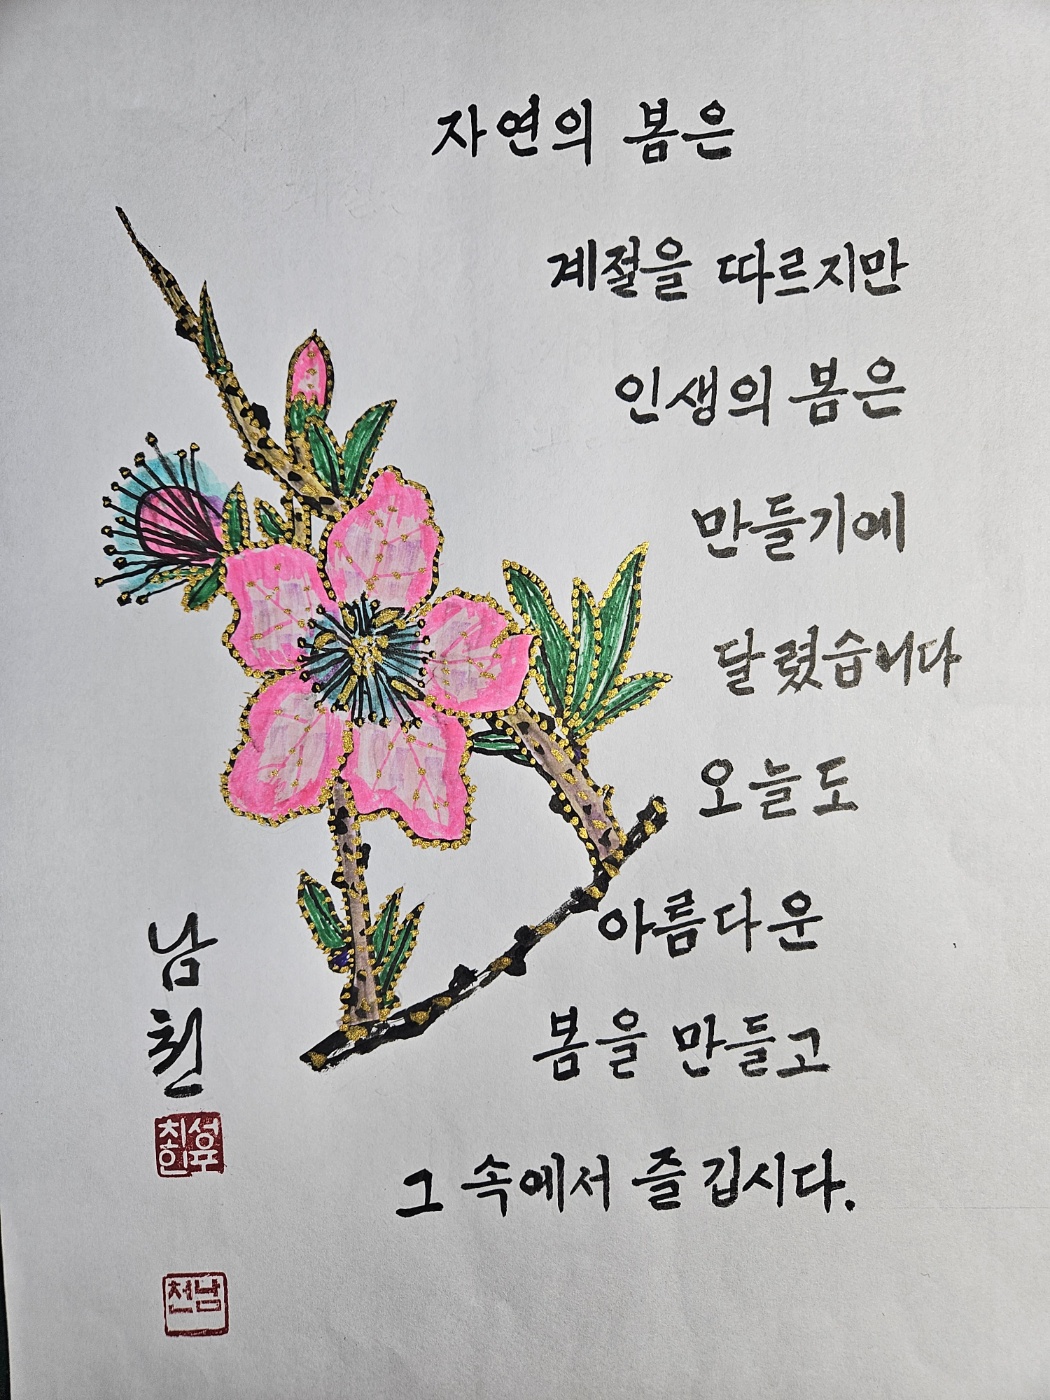 자연의 봄은
계절을 따르지만
인생의 봄은
만들기에
달렸습니다
오늘도
아름다운
봄을 만들고
그 속에서 즐깁시다.
남천
남천